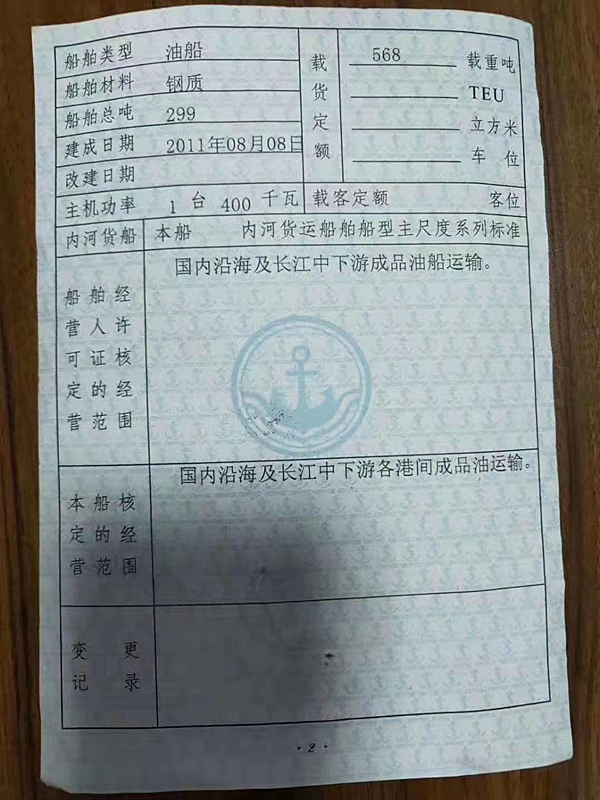 船舶类型 油船
船舶材料 钢质
船舶总吨 299
建成日期 2011年08月08日
改建日期
主机功率 1 台 400 千瓦
载货定额
568 载重吨
TEU
立方米
车 位
载客定额 客位
内河货船 本船 内河货运船舶船型主尺度系列标准
船舶经
营人许
可证核
定的经
营范围
国内沿海及长江中下游成品油船运输。
本船核
定的经
营范围
国内沿海及长江中下游各港间成品油运输。
变更
记录
·2·